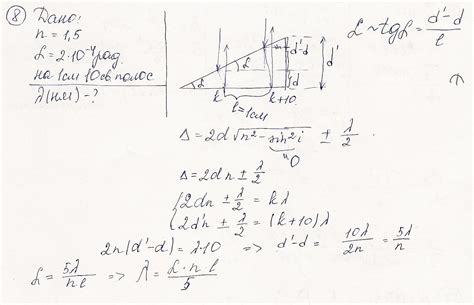 ⑧ Дано:
n = 1,5
𝓛 = 2·10⁻⁴ рад.
на 1см 10 св полос
λ(нм) – ?
𝓛 ~ tg𝓛 = (d'-d)/l
d'-d
d
d'
𝓛
k
k+10
l=1см
Δ = 2d√(n² - sin²i) ± λ/2
0
Δ = 2dn ± λ/2
{2dn ± λ/2 = kλ
{2d'n ± λ/2 = (k+10)λ
2n(d'-d) = λ·10 => d'-d = 10λ/2n = 5λ/n
𝓛 = 5λ/nl => λ = 𝓛·n·l/5